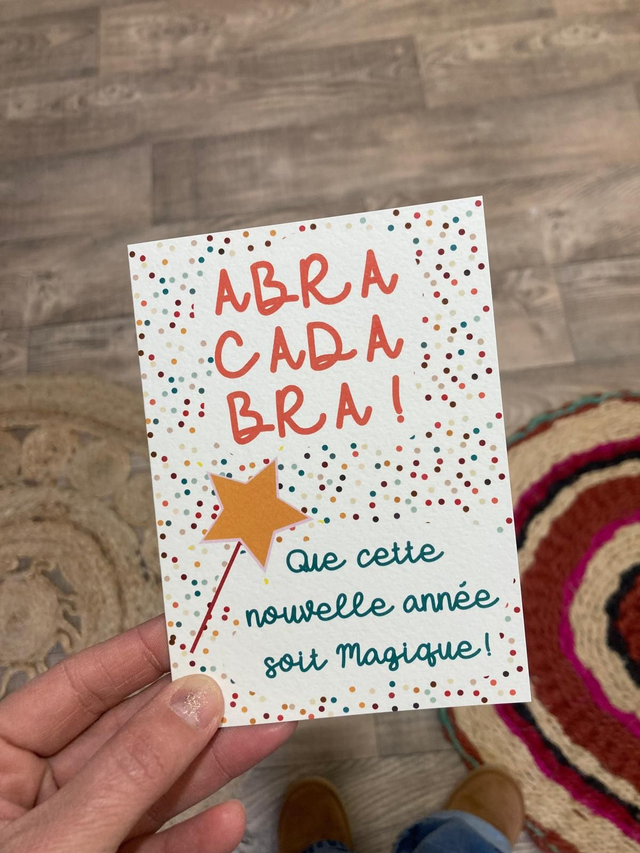 ABRA
CADA
BRA !
Que cette
nouvelle année
soit Magique !